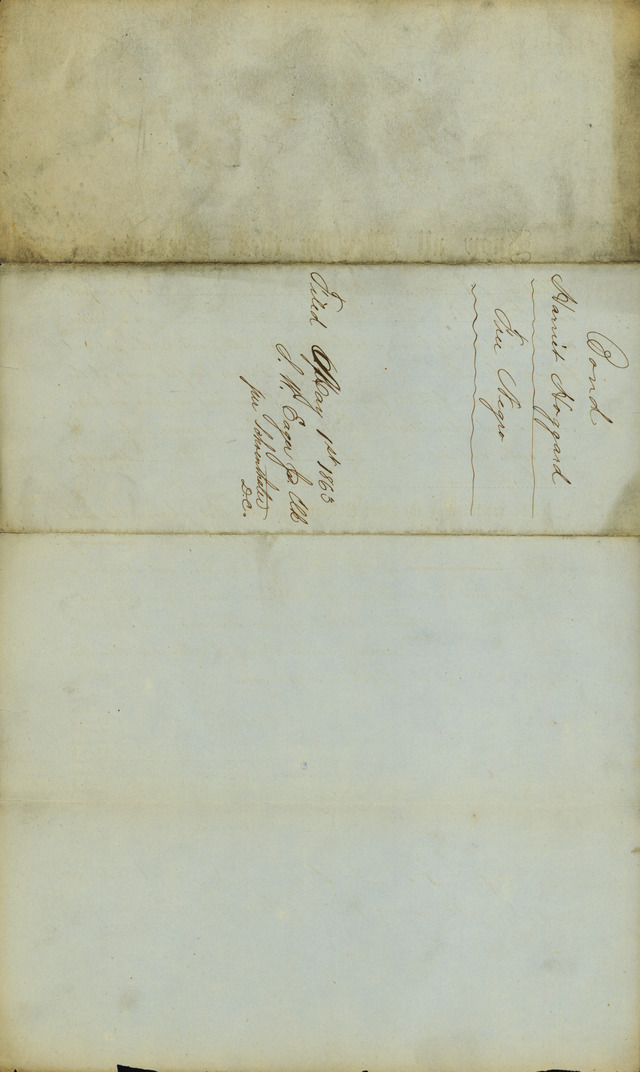 Bond
Harriet Hoggard
Free Negro
Filed May 1st 1863
S. W. Eager Jr Clk
per
D.C.